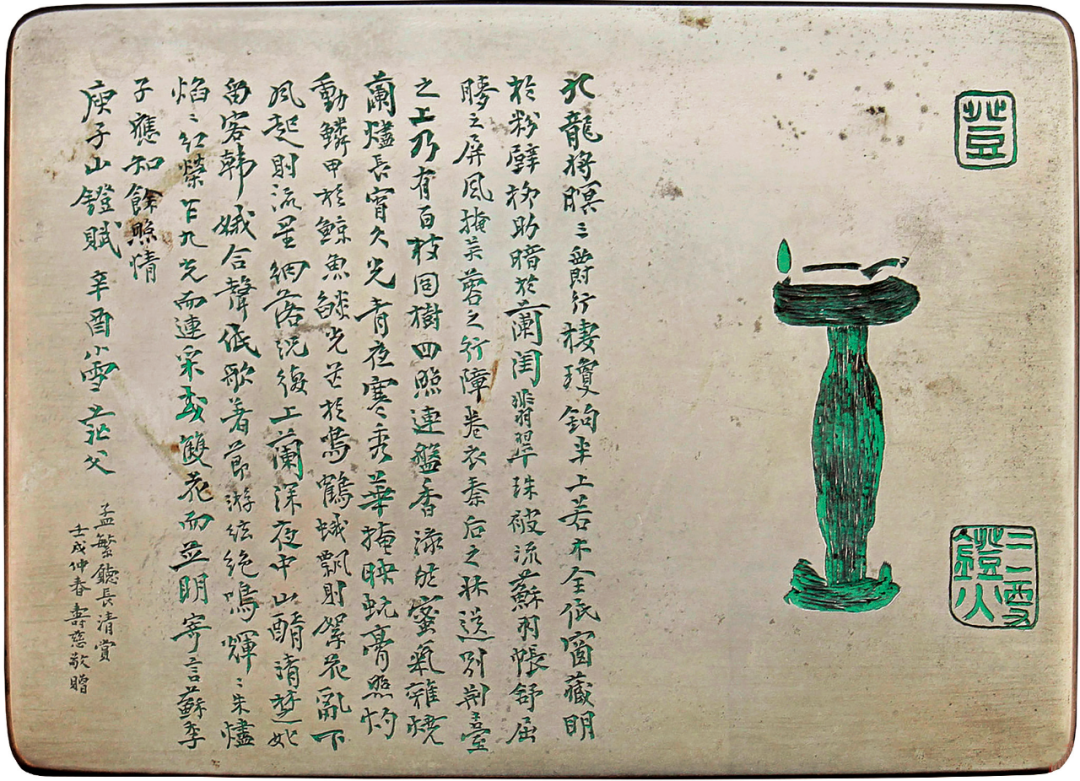 九龍將暝三爵行棲瓊鉤半上若木全低窗藏明
於粉壁柳助暗於蘭閨翡翠珠被流蘇羽帳舒屈
膝之屏風掩芙蓉之行障卷衣秦后之牀送別荊臺
之上乃有百枝同樹四照連盤香添然蜜氣雜燒
蘭燼長宵久光青夜寒秀華掩映蚖膏照灼
動鱗甲於鯨魚燄光芒於鳴鶴蛾飄則絮花亂下
風起則流星細落況復上蘭深夜中山醑清楚妃
留客韓娥合聲低歌著節游絃絕鳴輝〻朱燼
焰〻紅榮乍九光而連采或雙花而並明寄言蘇季
子應知餘照情
庾子山鐙賦 辛酉小雪茫父
孟繁聽長清賞
壬戌仲春壽慈敬贈